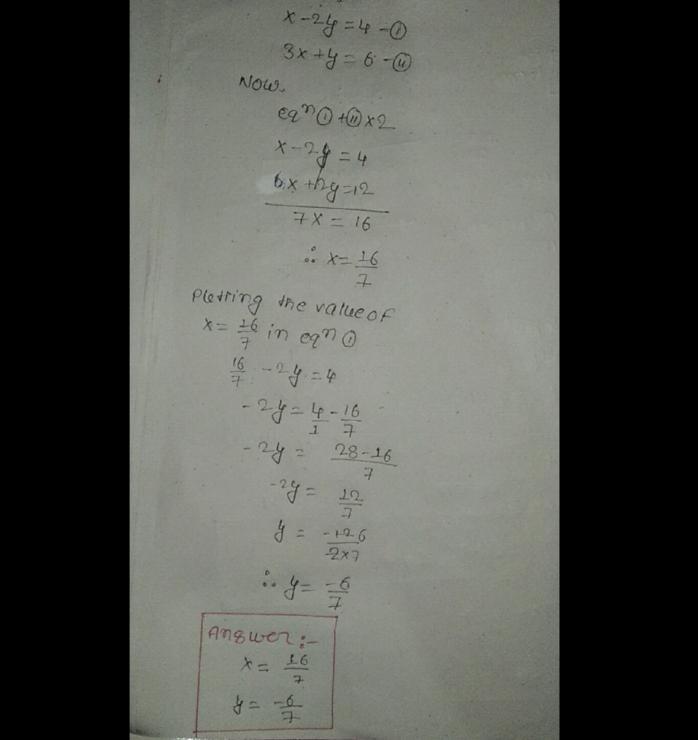 x-2y=4-①
3x+y=6-⑪
Now,
eqⁿ①+⑪x2
x-2y=4
6x+2y=12
7x=16
∴ x=16/7
Putting the value of
x=16/7 in eqⁿ①
16/7-2y=4
-2y=4/1-16/7
-2y=28-16/7
-2y=12/7
y=-12 6/2x7
∴ y=-6/7
Answer:-
x=16/7
y=-6/7